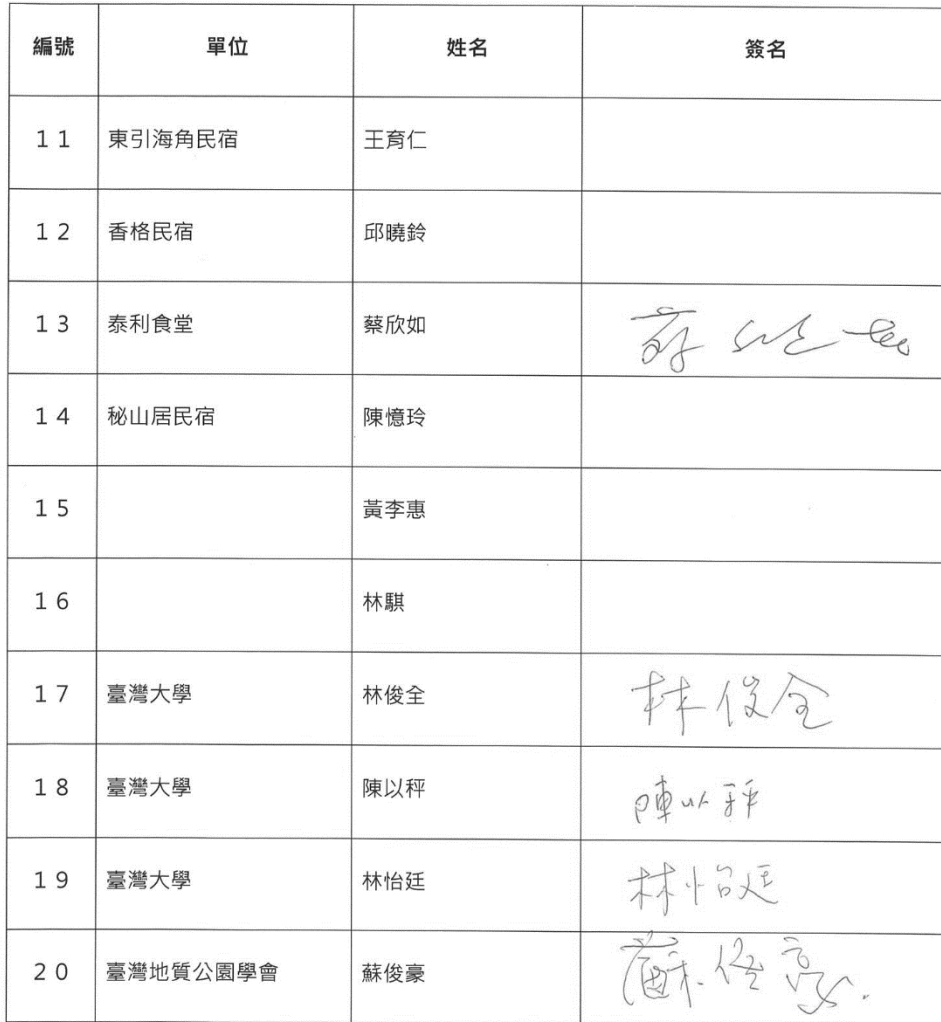 編號 單位 姓名 簽名
11 東引海角民宿 王育仁
12 香格民宿 邱曉鈴
13 泰利食堂 蔡欣如 蔡欣如
14 秘山居民宿 陳憶玲
15 黃李惠
16 林騏
17 臺灣大學 林俊全 林俊全
18 臺灣大學 陳以秤 陳以秤
19 臺灣大學 林怡廷 林怡廷
20 臺灣地質公園學會 蘇俊豪 蘇俊豪